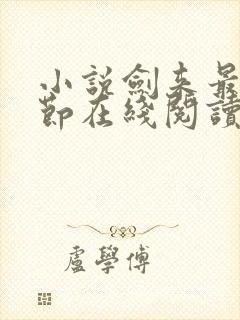 小說劍來最
節在綫閱讀
盧學傅